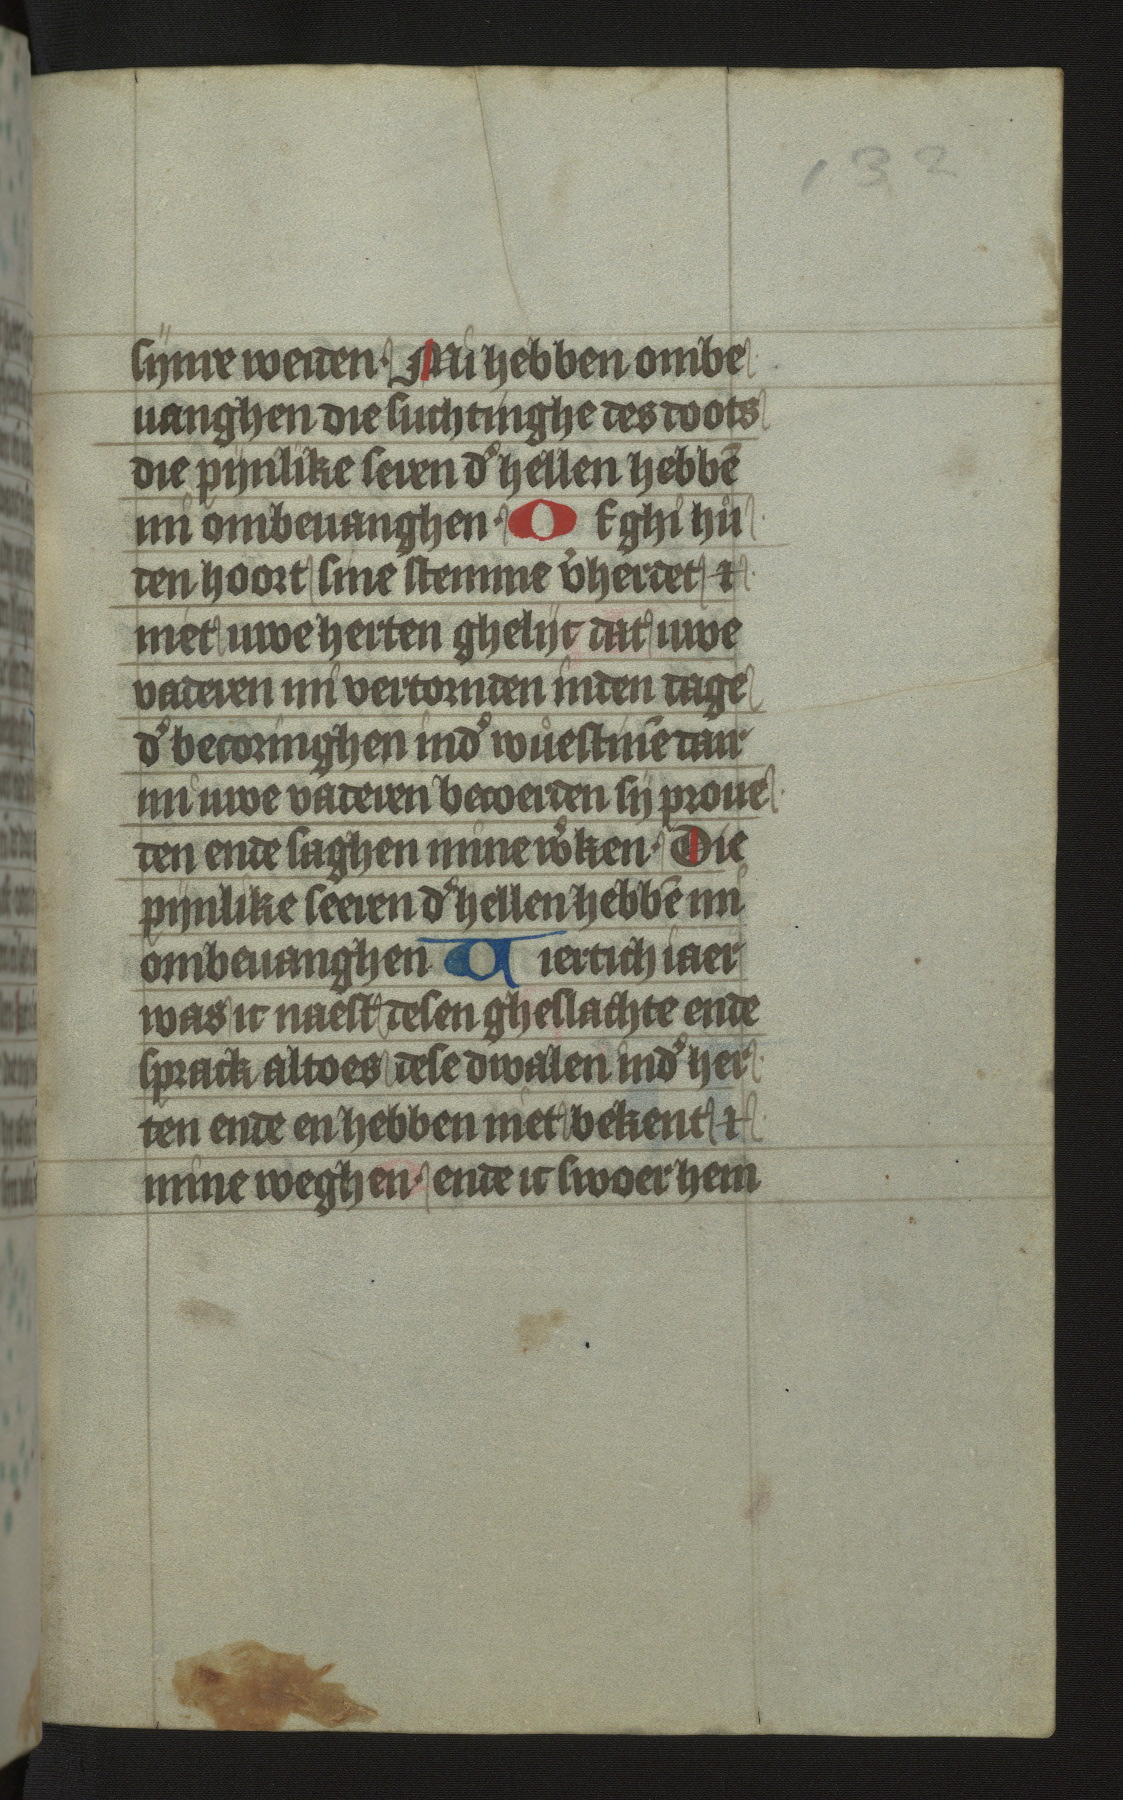 132
sijnre weiden· Mi hebben ombe
uanghen die suchtinghe des doots
die pijnlike seren dͬ hellen hebbē
mi ombeuanghen· O f ghi hu
den hoort sine stemme v̓herdet ⁊
niet uwe herten ghelijc dat uwe
vaderen mi vertornden inden dage
dͬ becoringhen indͬ wuestinē daer
mi uwe vaderen becoerden sij proue
den ende saghen mine w̓ken· Die
pijnlike seeren dͬ hellen hebbē mi
ombeuanghen V iertich iaer
was ic naest desen gheslachte ende
sprack altoes dese dwalen indͬ her
ten ende en hebben niet bekent ⁊
mine weghen· ende ic swoer hem